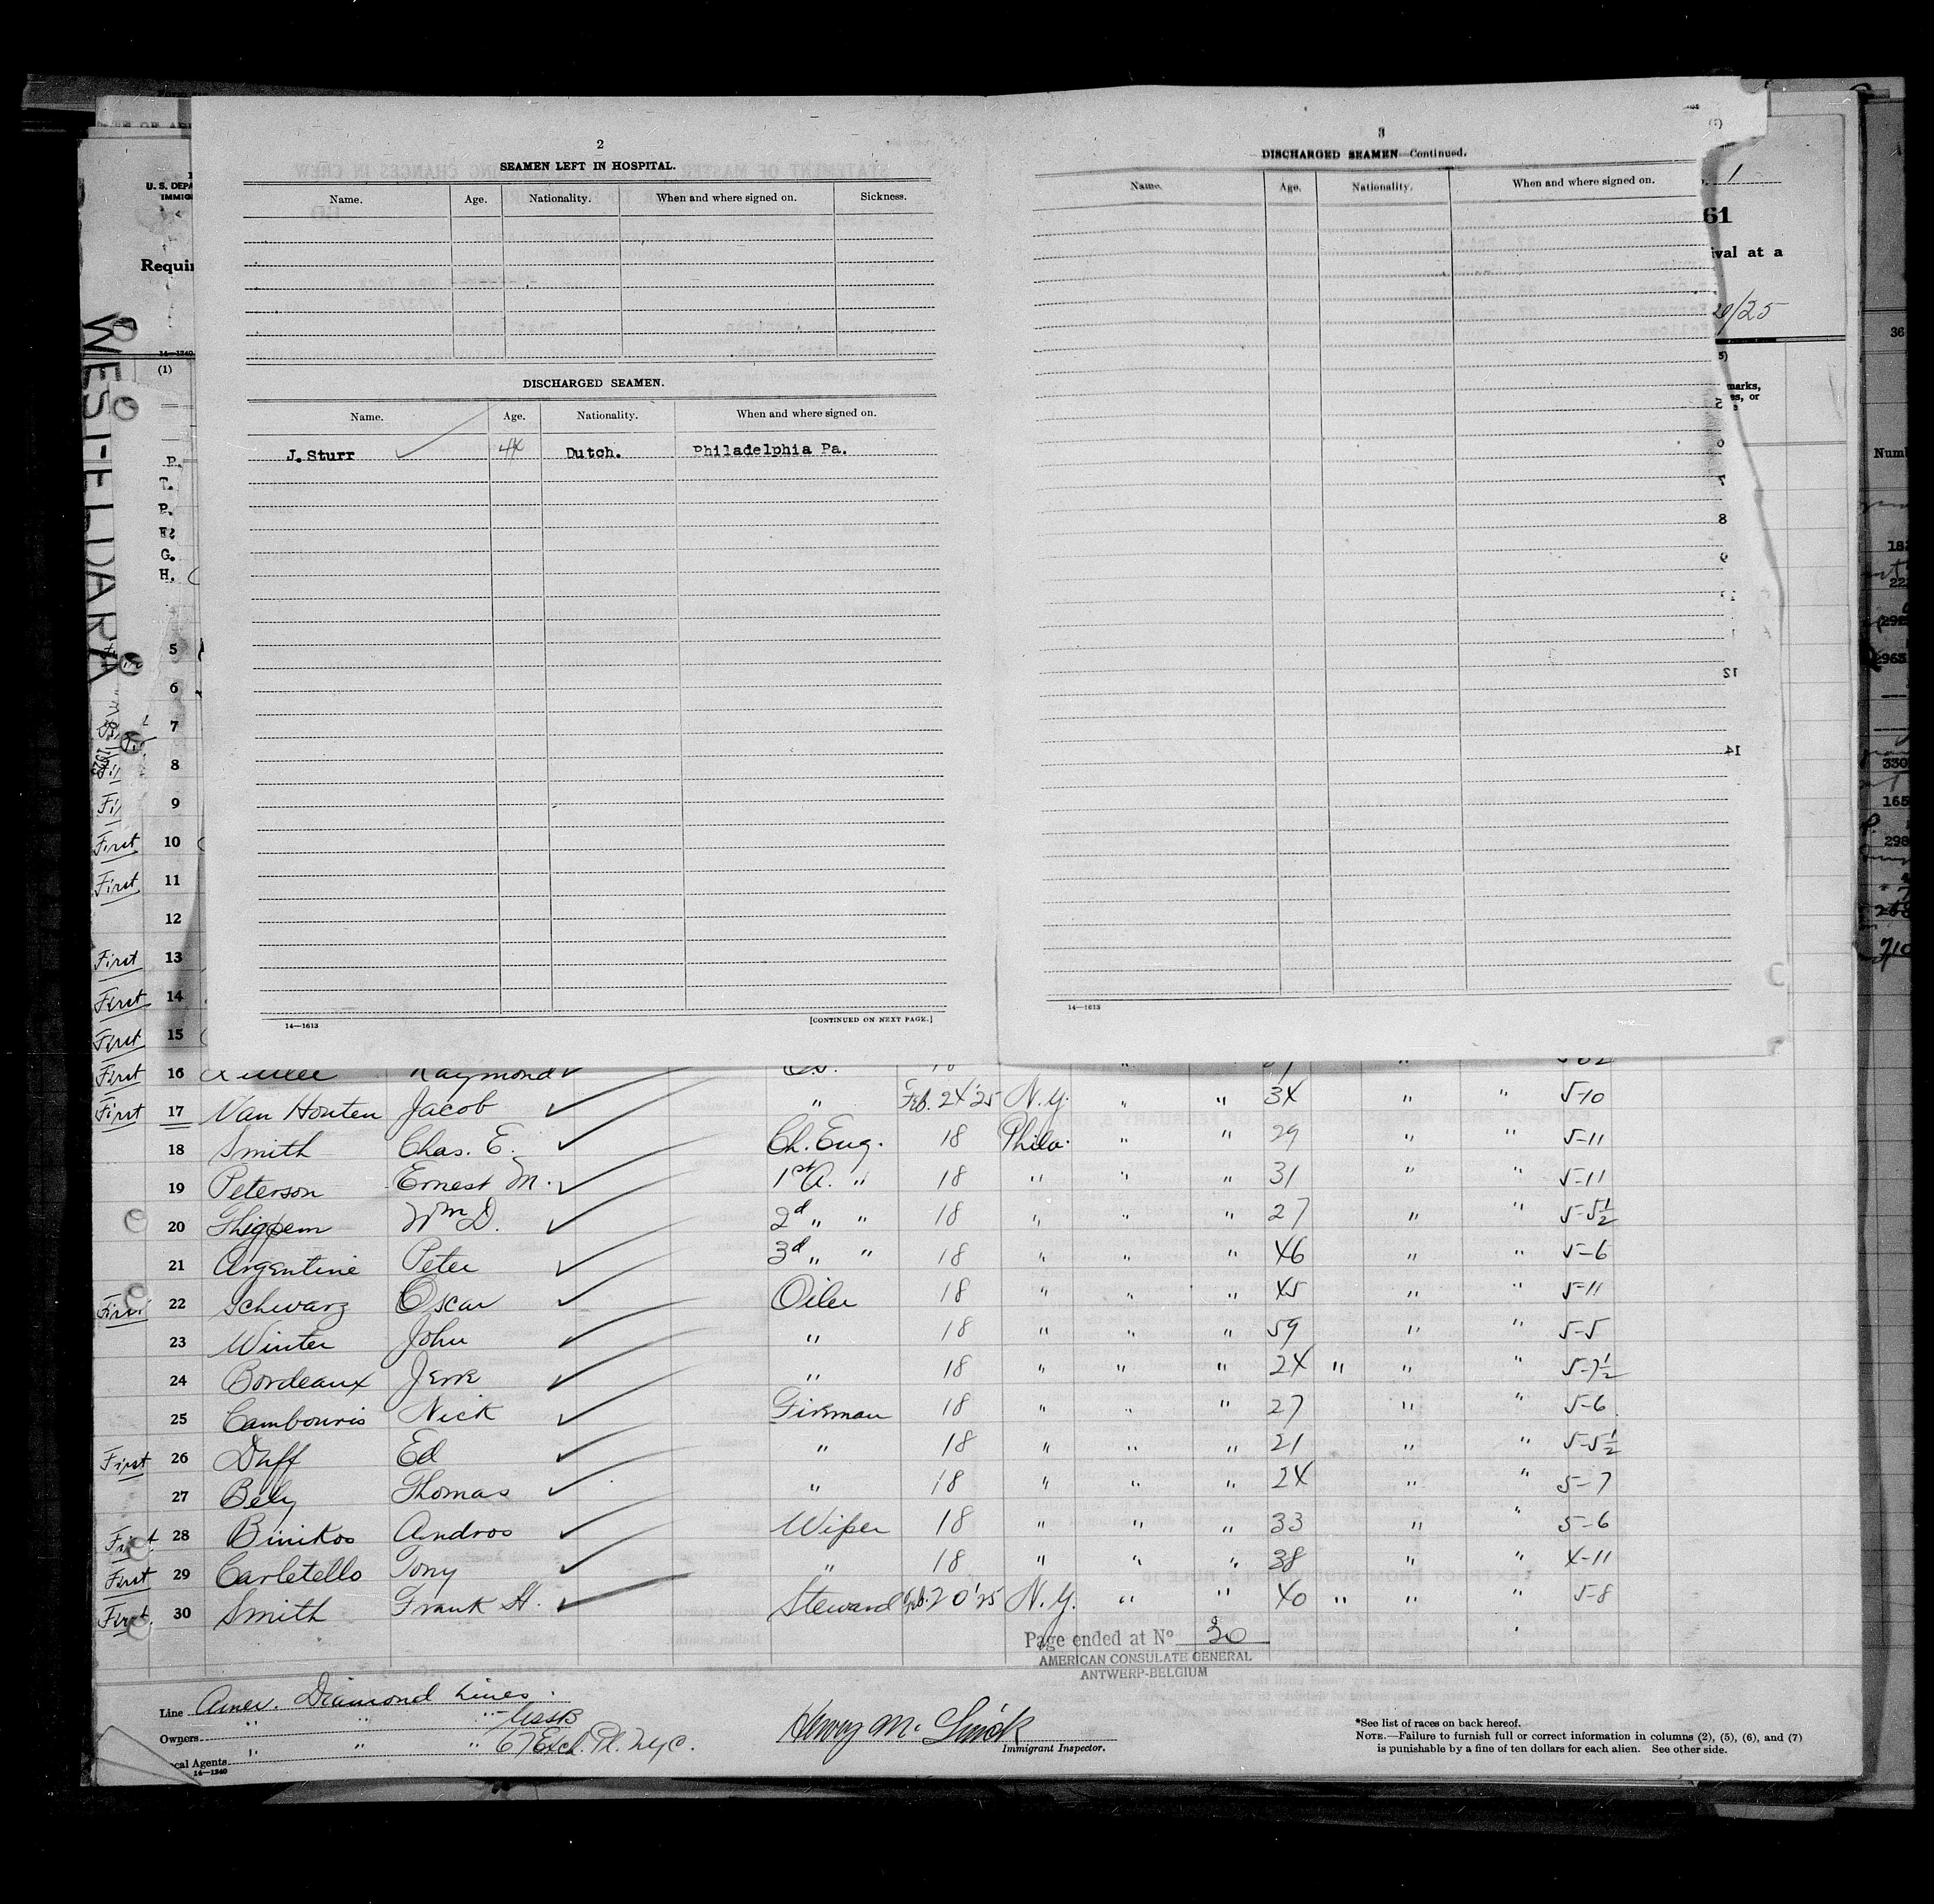 2
SEAMEN LEFT IN HOSPITAL.
Name. Age. Nationality. When and where signed on. Sickness.
DISCHARGED SEAMEN.
Name. Age. Nationality. When and where signed on.
J.Sturr Dutch. Philadelphia Pa.
14—1613 [CONTINUED ON NEXT PAGE.]
3
DISCHARGED SEAMEN—Continued.
Name. Age. Nationality. When and where signed on.
14—1613
U. S. DEPA
IMMIG
Requir
14—1240
(1)
WEST ELDARA
1
61
ival at a
20/25
marks,
es, or
e
P.
T.
P.
F.
G.
H.
5
6
7
8
9
First 10
First 11
12
First 13
First 14
First 15
First 16 Raymond
First 17 Van Houten Jacob " Feb. 24 '25 N.Y. " " 34 " " 5-10
18 Smith Chas. E. Ch. Eng. 18 Phila. " " 29 " " 5-11
19 Peterson Ernest M. 1st A. " 18 " " " 31 " " 5-11
20 Thigpem Wm D. 2d " " 18 " " " 27 " " 5-5½
21 Argentine Peter 3d " " 18 " " " 46 " " 5-6
First 22 Schwarz Oscar Oiler 18 " " " 45 " " 5-11
23 Winter John " 18 " " " 59 " " 5-5
24 Bordeaux Jerre " 18 " " " 24 " " " 5-7½
25 Cambouris Nick Fireman 18 " " " 27 " " 5-6
First 26 Duff Ed " 18 " " " 21 " " 5-5½
27 Bely Thomas " 18 " " " 24 " " 5-7
First 28 Binikos Andros Wiper 18 " " " 33 " " 5-6
First 29 Carletello Tony " 18 " " " 38 " " 4-11
First 30 Smith Frank H. Steward Feb. 20 '25 N.Y. " " 40 " " " 5-8
Page ended at No 30
AMERICAN CONSULATE GENERAL
ANTWERP-BELGIUM
Line Amer. Diamond Lines.
Owners " " " - USSB
cal Agents " " " 67 Exch. Pl. NYC.
14—1240
Henry Mc
Immigrant Inspector.
*See list of races on back hereof.
NOTE.—Failure to furnish full or correct information in columns (2), (5), (6), and (7)
is punishable by a fine of ten dollars for each alien. See other side.
36
Numb